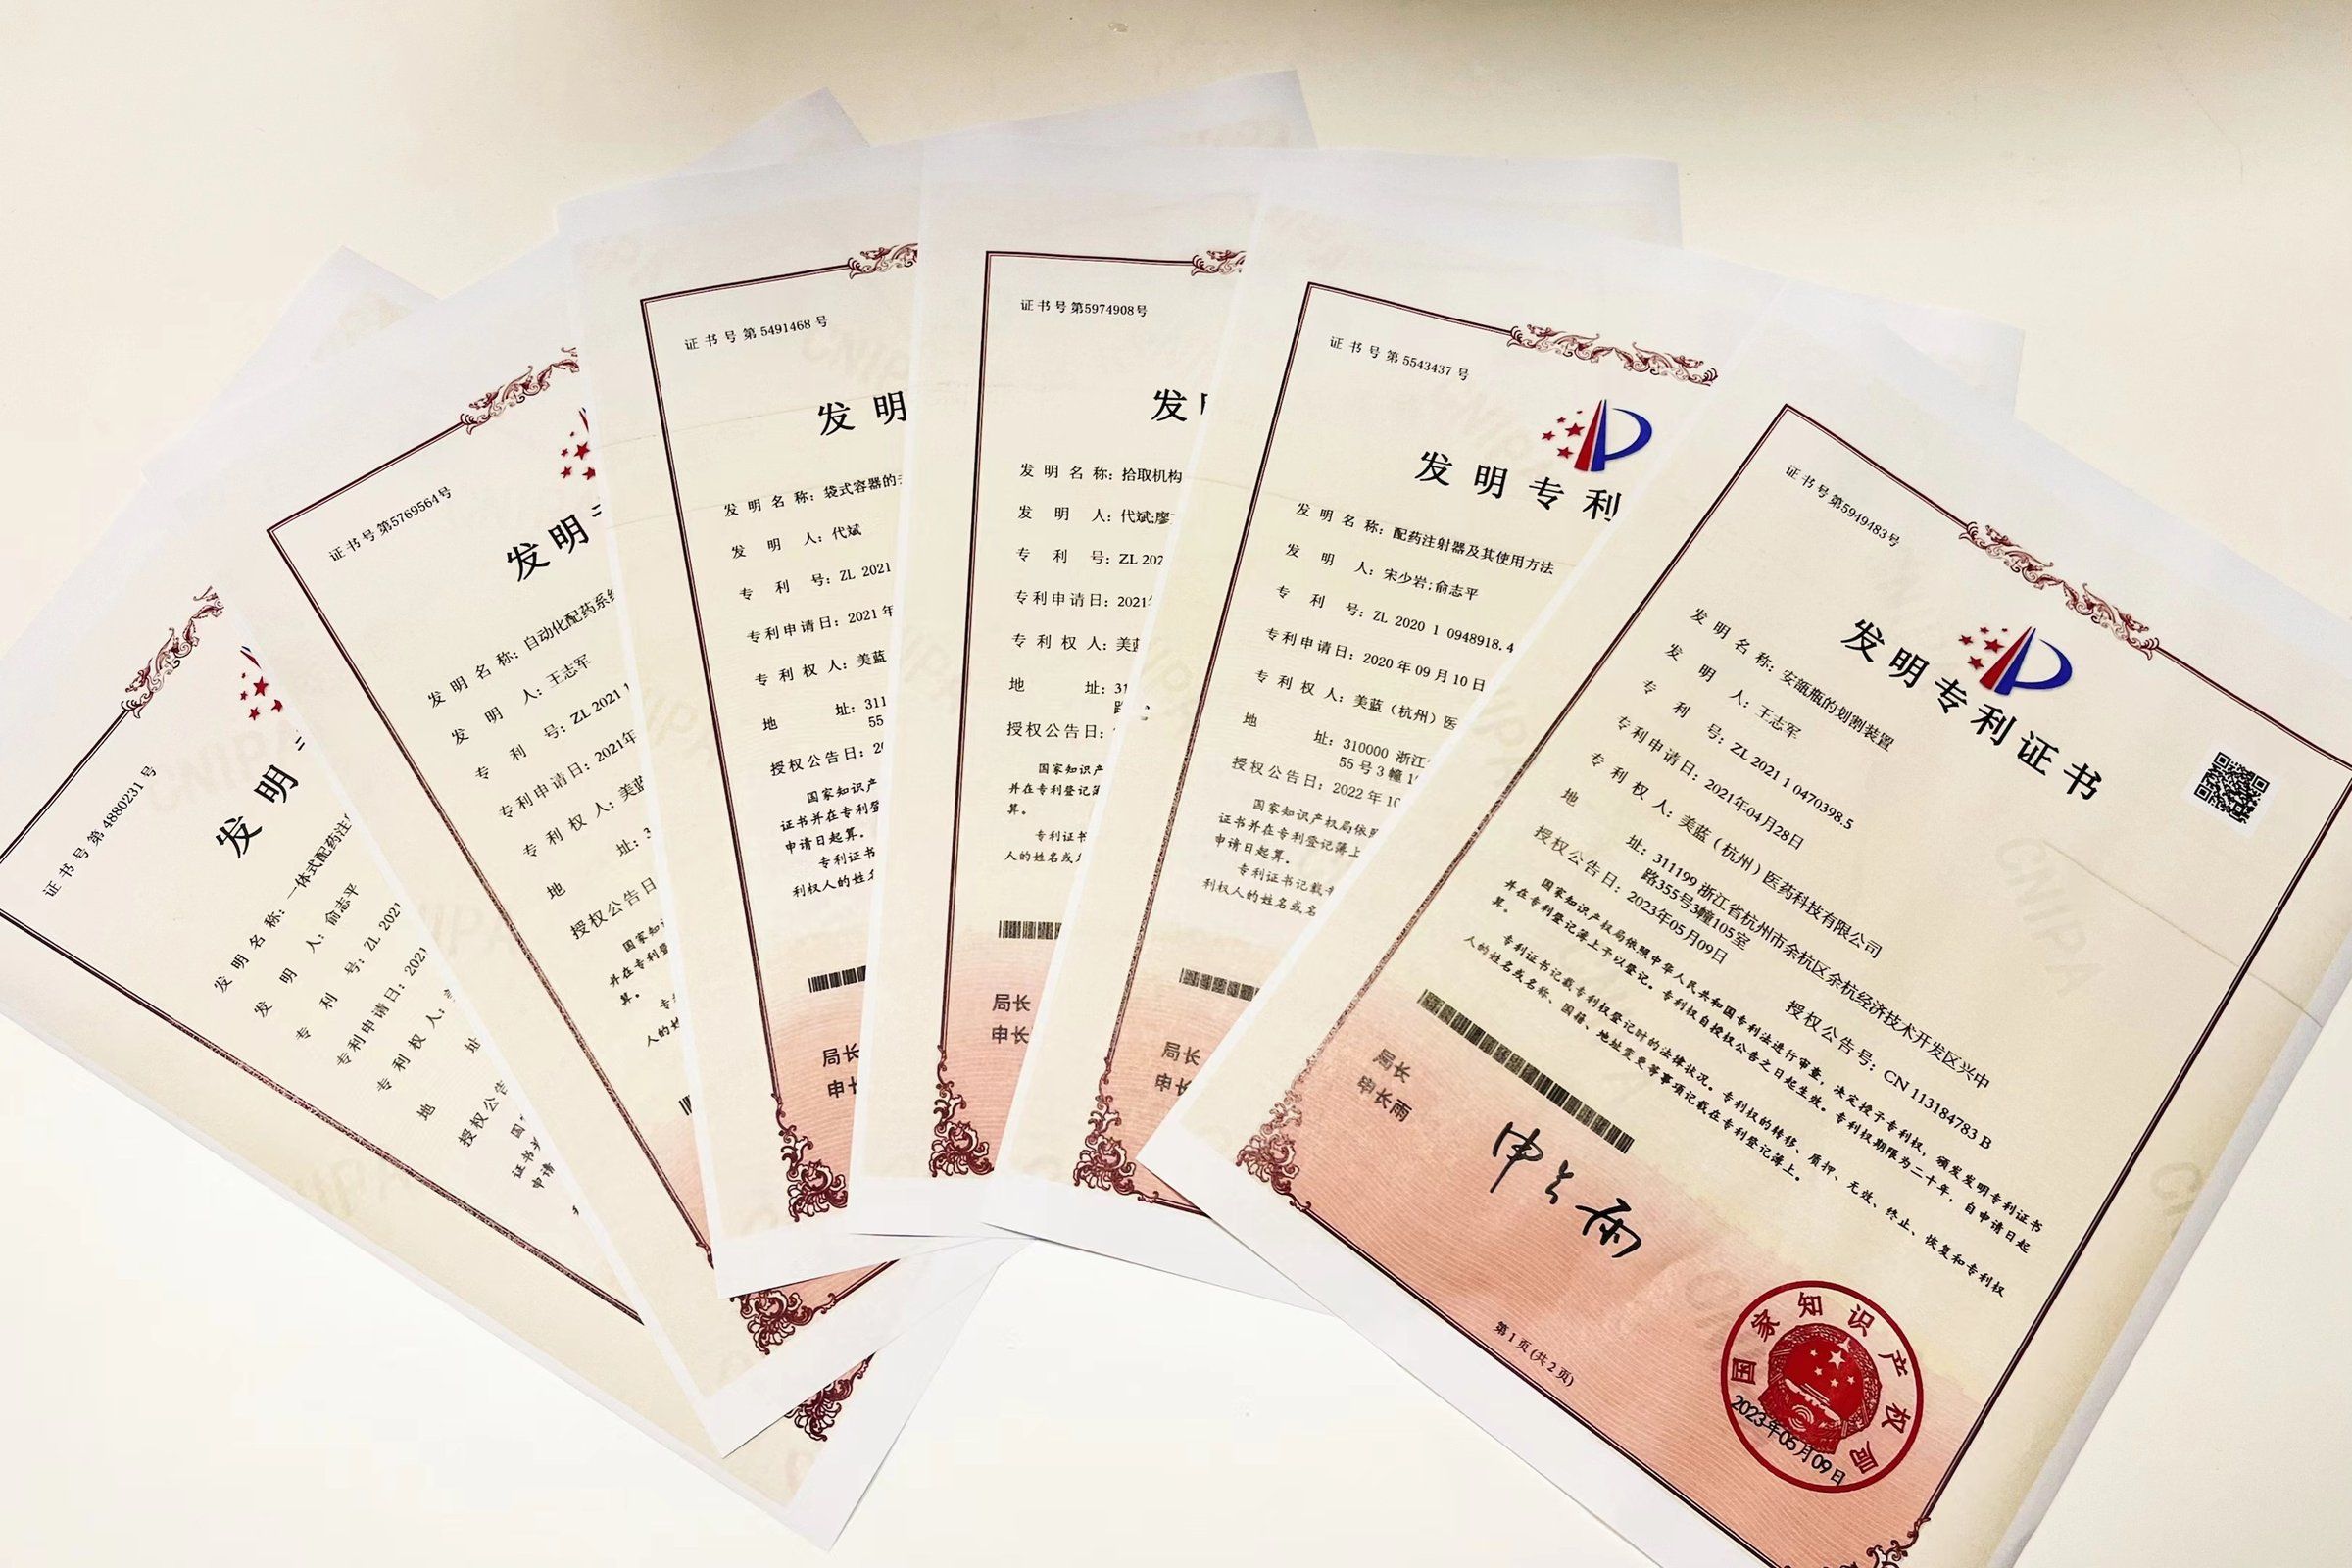 证书号第4880231号
发明
发明名称：一体式配药注
发明人：俞志平
专利号：ZL 2021
专利申请日：2021
专利权人：
地址
授权公告
国
证书并
申请
证书号第5769564号
发明
发明名称：自动化配药系统
发明人：王志军
专利号：ZL 2021 1
专利申请日：2021年
专利权人：美蓝
地址：3
授权公告日
国家知识
并在专利登
算。
专
人的姓
证书号第5491468号
发明
发明名称：袋式容器的
发明人：代斌
专利号：ZL 2021
专利申请日：2021年
专利权人：美蓝
地址：311
55
授权公告日：20
国家知识产
证书并在专利登
申请日起算。
专利证书
利权人的姓名
局长
申长
证书号第5974908号
发
发明名称：拾取机构
发明人：代斌;廖
专利号：ZL 202
专利申请日：2021
专利权人：美蓝
地址：31
路
授权公告日：
国家知识产
并在专利登记
算。
专利证书
人的姓名或
局长
申长
证书号第5543437号
发明专利
发明名称：配药注射器及其使用方法
发明人：宋少岩;俞志平
专利号：ZL 2020 1 0948918.4
专利申请日：2020年09月10日
专利权人：美蓝（杭州）医
地址：310000 浙江
55号3幢1
授权公告日：2022年10
国家知识产权局依照
证书并在专利登记簿上
申请日起算。
专利证书记载专
利权人的姓名或名
局长
申长
证书号第5949483号
发明专利证书
发明名称：安瓿瓶的划割装置
发明人：王志军
专利号：ZL 2021 1 0470398.5
专利申请日：2021年04月28日
专利权人：美蓝（杭州）医药科技有限公司
地址：311199 浙江省杭州市余杭区余杭经济技术开发区兴中
路355号3幢105室
授权公告日：2023年05月09日 授权公告号：CN 113184783 B
国家知识产权局依照中华人民共和国专利法进行审查，决定授予专利权，颁发发明专利证书
并在专利登记簿上予以登记。专利权自授权公告之日起生效。专利权期限为二十年，自申请日起
算。
专利证书记载专利权登记时的法律状况。专利权的转移、质押、无效、终止、恢复和专利权
人的姓名或名称、国籍、地址变更等事项记载在专利登记簿上。
局长
申长雨
申长雨
国家知识产权局
2023年05月09日
第1页(共2页)